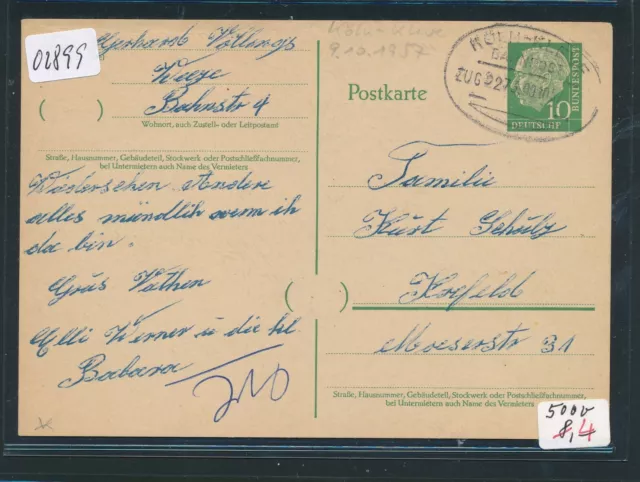 02899
Gerhard
Weeze
Bahnstr 4
Wohnort, auch Zustell- oder Leitpostamt
Straße, Hausnummer, Gebäudeteil, Stockwerk oder Postschließfachnummer,
bei Untermietern auch Name des Vermieters
Wiedersehen. Andere
alles mündlich wenn ich
da bin.
Grüs
Elli Werner u die kl.
Babara
Köln-Kleve
9.10.1957
Postkarte
BAHNPOST
ZUG
10
DEUTSCHE
BUNDESPOST
Familie
Kurt Schulz
Krefeld
Moeserstr 31
Straße, Hausnummer, Gebäudeteil, Stockwerk oder Postschließfachnummer,
bei Untermietern auch Name des Vermieters
500v
8,4